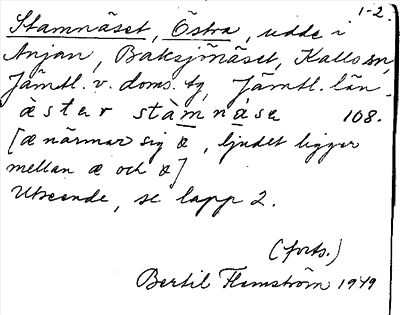 1-2.
Stamnäset, Östra, udde i
Anjan, Baksjönäset, Kalls sn,
Jämtl. v. doms. tg, Jämtl. län.
àster stàmnáse 108.
[æ närmar sig a, ljudet ligger
mellan æ och a]
Utseende, se lapp 2.
(forts.)
Bertil Flemström 1949